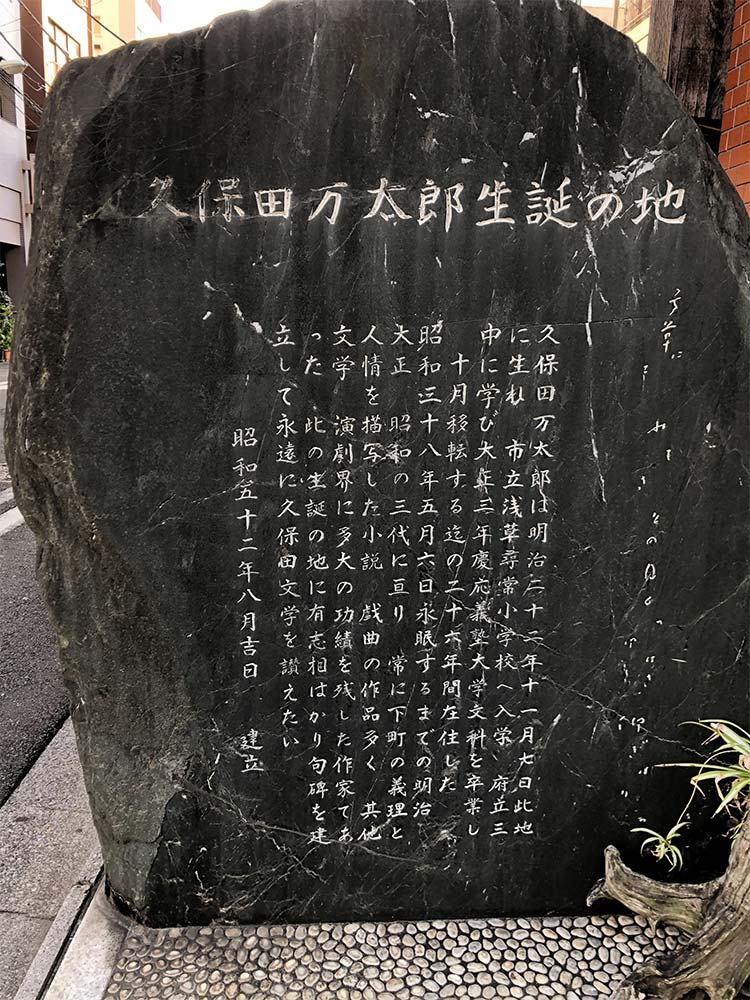 久保田万太郎生誕の地
久保田万太郎は明治二十二年十一月七日此地
に生れ 市立浅草尋常小学校へ入学 府立三
中に学び大正三年慶応義塾大学文科を卒業し
十月移転する迄の二十六年間在住した
昭和三十八年五月六日永眠するまでの明治
大正 昭和の三代に亘り 常に下町の義理と
人情を描写した小説 戯曲の作品多く 其他
文学 演劇界に多大の功績を残した作家であ
った 此の生誕の地に有志相はかり句碑を建
立して永遠に久保田文学を讃えたい
昭和五十二年八月吉日 建立